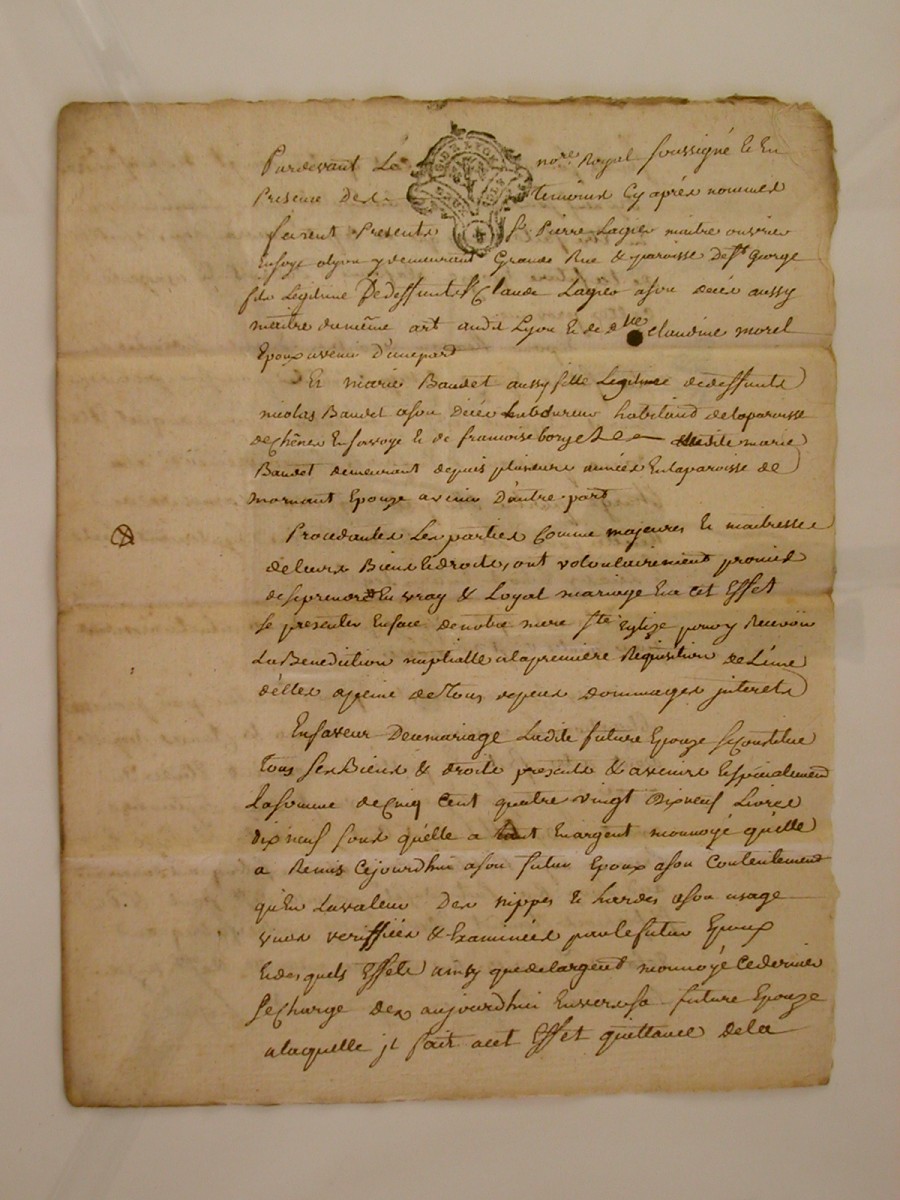 Pardevant Le no.re Royal soussigné et En
Presence des temoins Cy aprés nommes
furent Presents Sr Pierre Lagier maitre ouvrier
En soye a Lyon y demeurant Grande Rue & paroisse De St George
fils Legitime De deffunt Sr Claude Lagier a son decés aussy
maitre du même art audit Lyon Et de dlle Claudine morel
Epoux avenir D'une part
Et marie Baudet aussy fille Legitime de deffunt
nicolas Baudet a son Decés Laboureur habitand de la paroisse
de Chênes En savoye Et de francoise borget La ditte marie
Baudet demeurant depuis plusieurs années En la paroisse de
mornant Epouze avenir D'autre part
Procedantes Les parties Comme majeures Et maitresses
de leurs Biens Et droits, ont volontairement promis
de se prendre En vray & Loyal mariage En a Cet Effet
se presenter En face de notre mere Ste Eglize pour y Recevoir
La Benediction nuptialle a la premiere Requisition de L'une
d'elles a peine de tous depens dommages interets
En faveur De ce mariage Ladite future Epouze se Constitue
tous ses Biens & droits presents & avenirs Et specialement
La somme de Cinq Cent quatre vingt Dix neuf Livres
dix neuf sous qu'elle a tant En argent monnoyé qu'elle
a Remis Cejourdhui a son futur Epoux a son Contentement
qu'En La valeur Des nippes Et hardes a son usage
vues verifiées & Examinées par le futur Epoux
Et des quels Effets ainsy que de largent monnoyé Ce dernier
se Charge des aujourdhui Envers sa future Epouze
a laquelle jl fait a cet Effet quittance de la